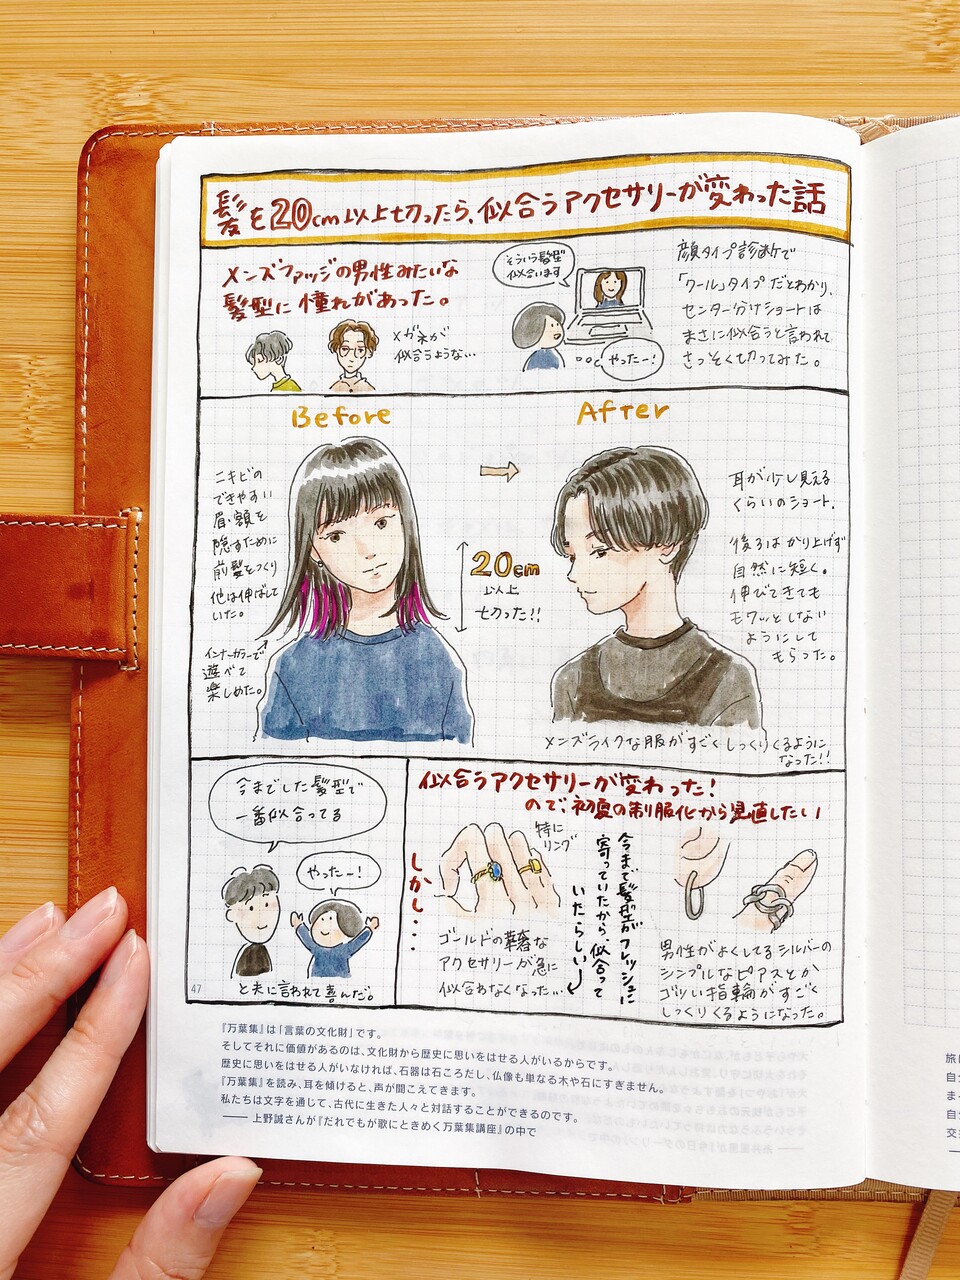 髪を20cm以上切ったら、似合うアクセサリーが変わった話
メンズファッジの男性みたいな
髪型に憧れがあった。
メガネが
似合うような…
そういう髪型
似合います
やったー!
顔タイプ診断で
「クール」タイプだとわかり、
センター分けショートは
まさに似合うと言われて
さっそく切ってみた。
Before
After
ニキビの
できやすい
眉・額を
隠すために
前髪をつくり
他は伸ばして
いた。
インナーカラーで
遊べて
楽しめた。
20cm
以上
切った!!
耳が少し見える
くらいのショート。
後ろはかり上げず
自然に短く。
伸びてきても
モワッとしない
ようにして
もらった。
メンズライクな服がすごくしっくりくるように
なった!!
今までした髪型で
一番似合ってる
やったー!
と夫に言われて喜んだ。
似合うアクセサリーが変わった!
ので、初夏の制服化から見直したい
しかし...
特に
リング
ゴールドの華奢な
アクセサリーが急に
似合わなくなった…
今まで髪型がフレッシュに
寄っていたから、似合って
いたらしい
男性がよくしてるシルバーの
シンプルなピアスとか
ゴツい指輪がすごく
しっくりくるようになった。
47
『万葉集』は「言葉の文化財」です。
そしてそれに価値があるのは、文化財から歴史に思いをはせる人がいるからです。
歴史に思いをはせる人がいなければ、石器は石ころだし、仏像も単なる木や石にすぎません。
『万葉集』を読み、耳を傾けると、声が聞こえてきます。
私たちは文字を通じて、古代に生きた人々と対話することができるのです。
―― 上野誠さんが『だれでもが歌にときめく万葉集講座』の中で
旅
自分
ま
自分
交